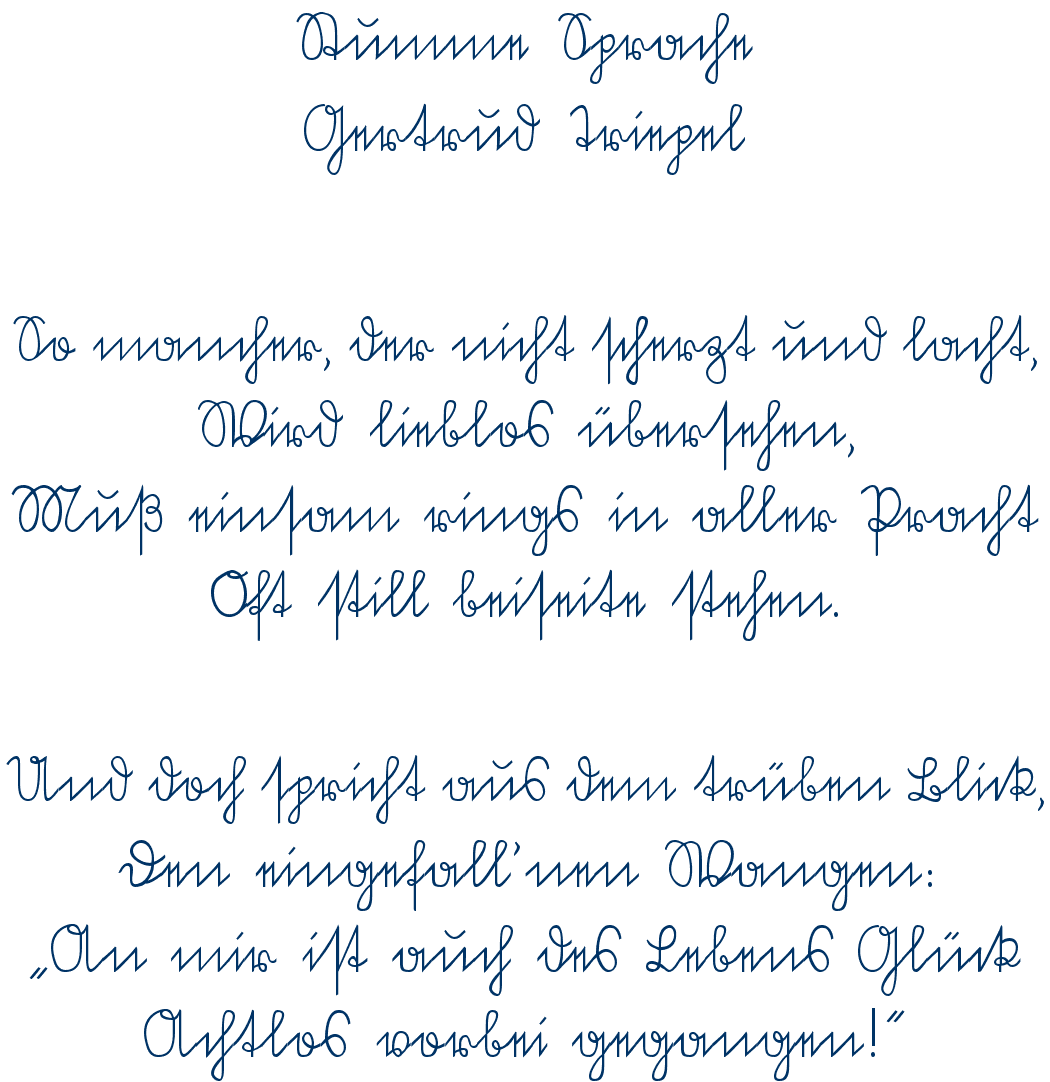 Stumme Sprache
Gertrud Triepel
So mancher, der nicht scherzt und lacht,
Wird lieblos übersehen,
Muß einsam rings in aller Pracht
Oft still beiseite stehen.
Und doch spricht aus dem trüben Blick,
Den eingefall'nen Wangen:
„An mir ist auch des Lebens Glück
Achtlos vorbei gegangen!“